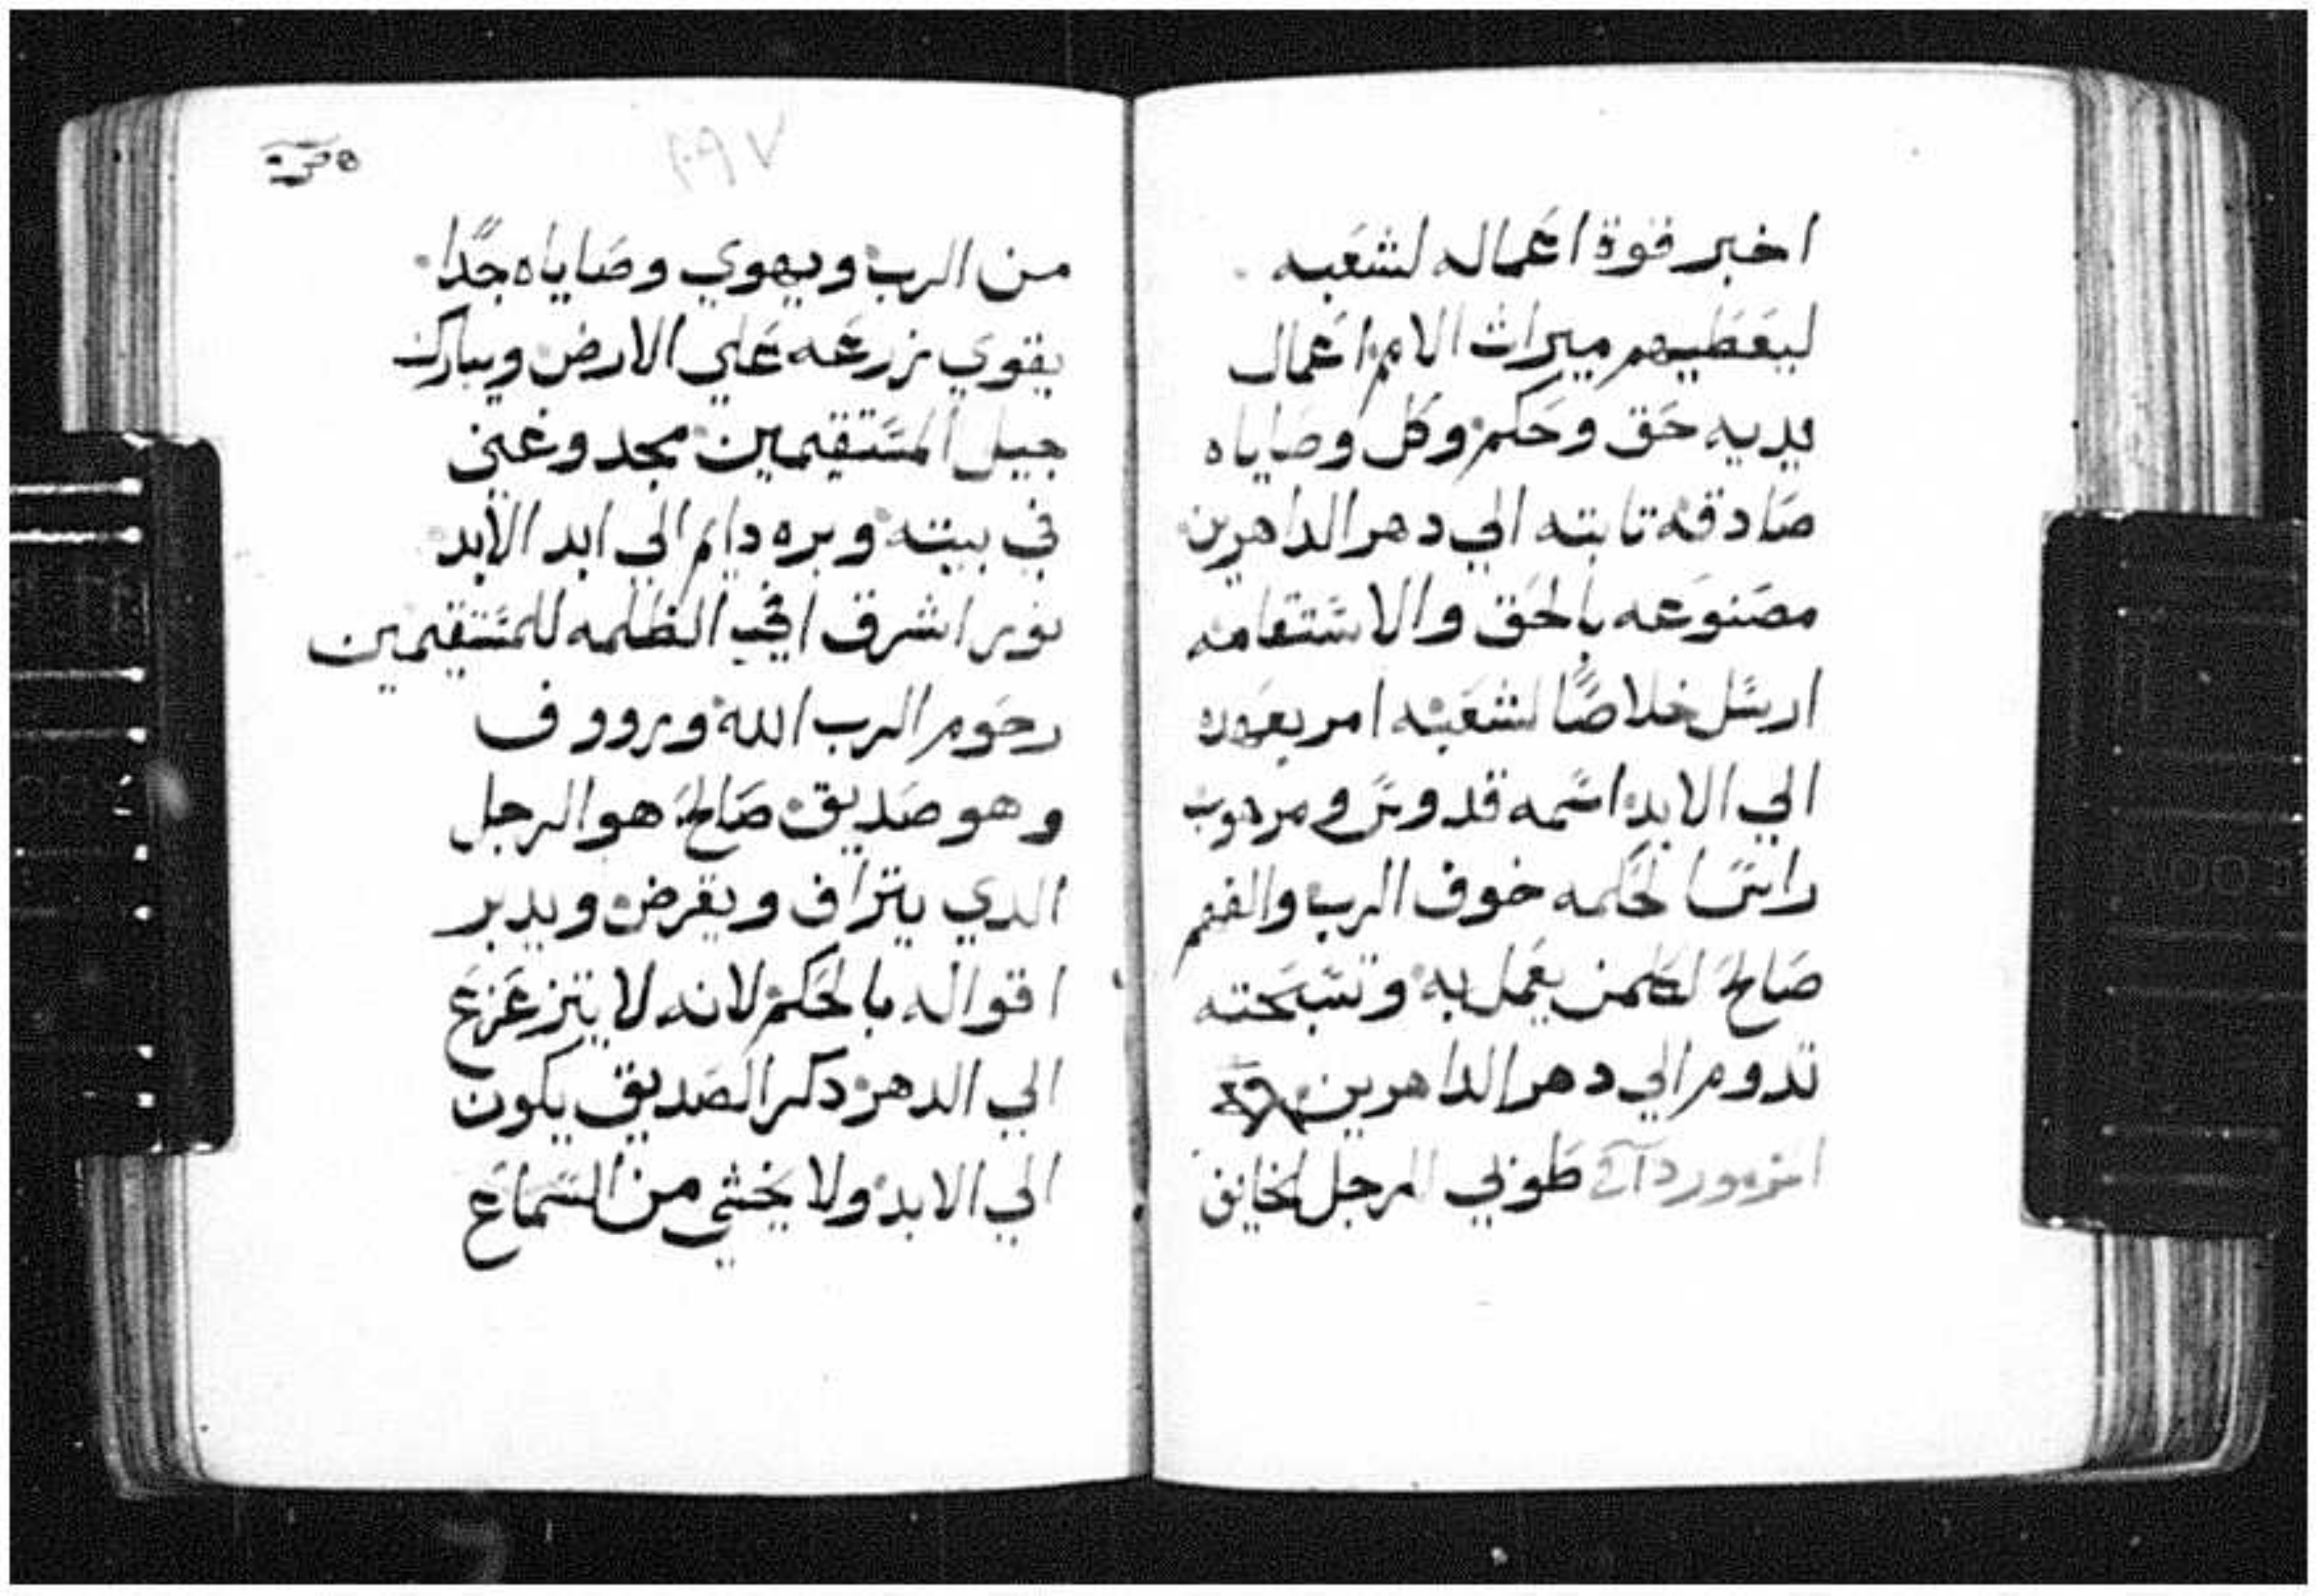 اخبر قوة اعماله لشعبه
ليعطيهم ميراث الامم اعمال
يديه حق وحكم وكل وصاياه
صادقه تابته الي دهر الداهرين
مصنوعه بالحق والاستقامه
ارسل خلاصًا لشعبه امر بعهده
الي الابد اسمه قدوس ومرهوب
راس الحكمه خوف الرب والفهم
صالح لكلمن يعمل به وتسبحته
تدوم الي دهر الداهرين
طوبي للرجل الخايف
٢٩٧
من الرب ويهوي وصاياه جدًا
يقوي زرعه علي الارض ويبارك
جيل المستقيمين مجد وغني
في بيته وبره دايم الي ابد الابد
نور اشرق في الظلمه للمستقيمين
رحوم الرب الله ورووف
وهو صديق صالح هو الرجل
الدي يتراف ويقرض ويدبر
اقواله بالحكم لانه لا يتزعزع
الي الدهر دكر الصديق يكون
الي الابد ولا يخشي من السماع